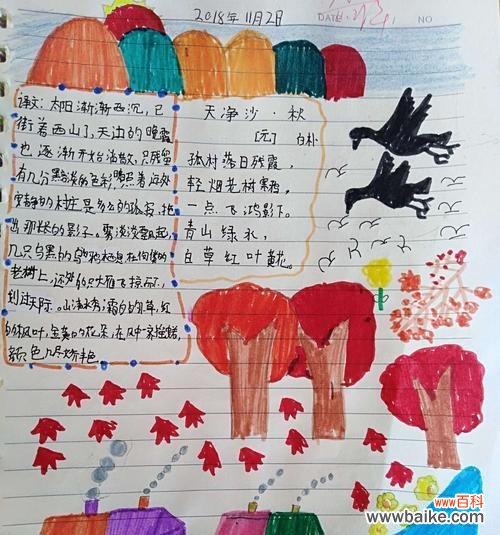 2018年11月2日
DATE
NO
译文：太阳渐渐西沉，已
衔着西山了，天边的晚霞
也逐渐开始消散，只残留
有几分黯淡的色彩，照着远处
安静的村庄是多么的孤寂，拖
出那长长的影子。雾淡淡飘起，
几只乌黑的乌鸦栖息在佝偻的
老树上，远处的大雁飞掠而下，
划过天际。山清水秀霜白的小草，红
的枫叶，金黄的花朵，在风中一齐摇曳，
颜色几尽妖艳。
天净沙·秋
[元] 白朴
孤村落日残霞，
轻烟老树寒鸦，
一点飞鸿影下。
青山绿水，
白草红叶黄花。
www百科
www.baike.com